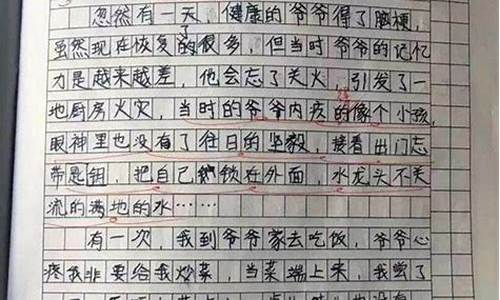 忽然有一天，健康的爷爷得了脑梗，
虽然现在恢复了的很多，但当时爷爷的记忆
力是越来越差，他会忘了关火，引发了一
地厨房火灾，当时的爷爷内疚的像个小孩，
眼神里也没有了往日的坚毅，接着出门忘
带是钥，把自己锁在外面，水龙头不关
流的满地的水……
有一次，我到爷爷家去吃饭，爷爷心
疼我非要给我炒菜，当菜端上来，我尝了